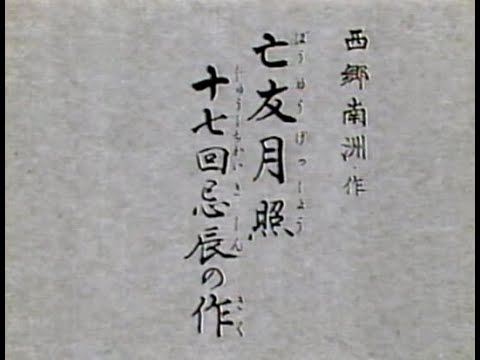 西郷南洲・作
亡友月照
ぼうゆうげっしょう
十七回忌辰の作
じゅうしちかいきしんさく